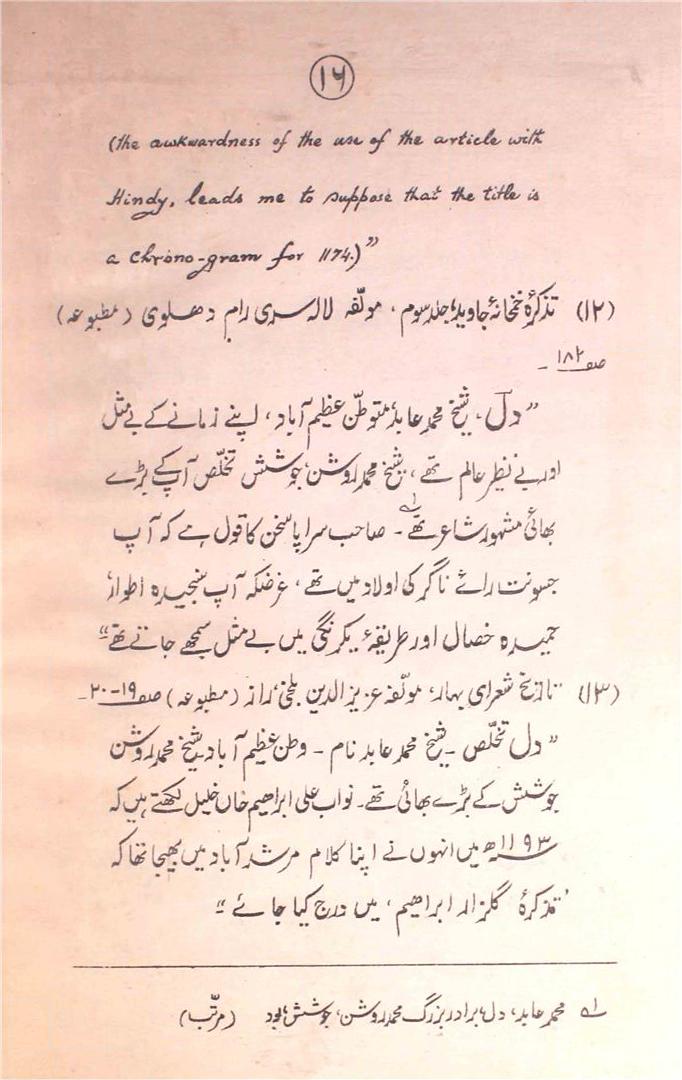 ۱۶
(the awkwardness of the use of the article with
Hindy, leads me to suppose that the title is
a chrono-gram for 1174.)”
(۱۲) تذکرۂ خمخانۂ جاوید، جلد سوم، مولّفہ لالہ سری رام دھلوی (مطبوعہ)
صفـ۱۸۲ـ۔
”دلؔ، شیخ محمد عابدؔ متوطّن عظیم آباد، اپنے زمانے کے بے مثل
اور بے نظیر عالم تھے، شیخ محمد روشن، جوشش تخلّص آپ کے بڑے
بھائی مشہور شاعر تھے۱؎۔ صاحب سراپا سخن کا قول ہے کہ آپ
جسونت رائے ناگر کی اولاد میں تھے، غرضکہ آپ سنجیدہ اطوار
حمیدہ خصال اور طریقۂ یکرنگی میں بے مثل سمجھے جاتے تھے“
(۱۳) تاریخ شعرای بہار، مولّفہ عزیز الدین بلخی، راز (مطبوعہ) صفـ۱۹-۲۰ـ۔
”دل تخلّص۔ شیخ محمد عابد نام۔ وطن عظیم آباد۔ شیخ محمد روشن
جوشش کے بڑے بھائی تھے۔ نواب علی ابراھیم خاں خلیل لکھتے ہیں کہ
سنہ ۱۱۹۳ھ میں انہوں نے اپنا کلام مرشد آباد میں بھیجا تھا کہ
’تذکرۂ گلزار ابراھیم، میں درج کیا جائے“
۱؎ محمد عابد، دل، برادر بزرگ محمد روشن، جوشش، بود (مرتّب)